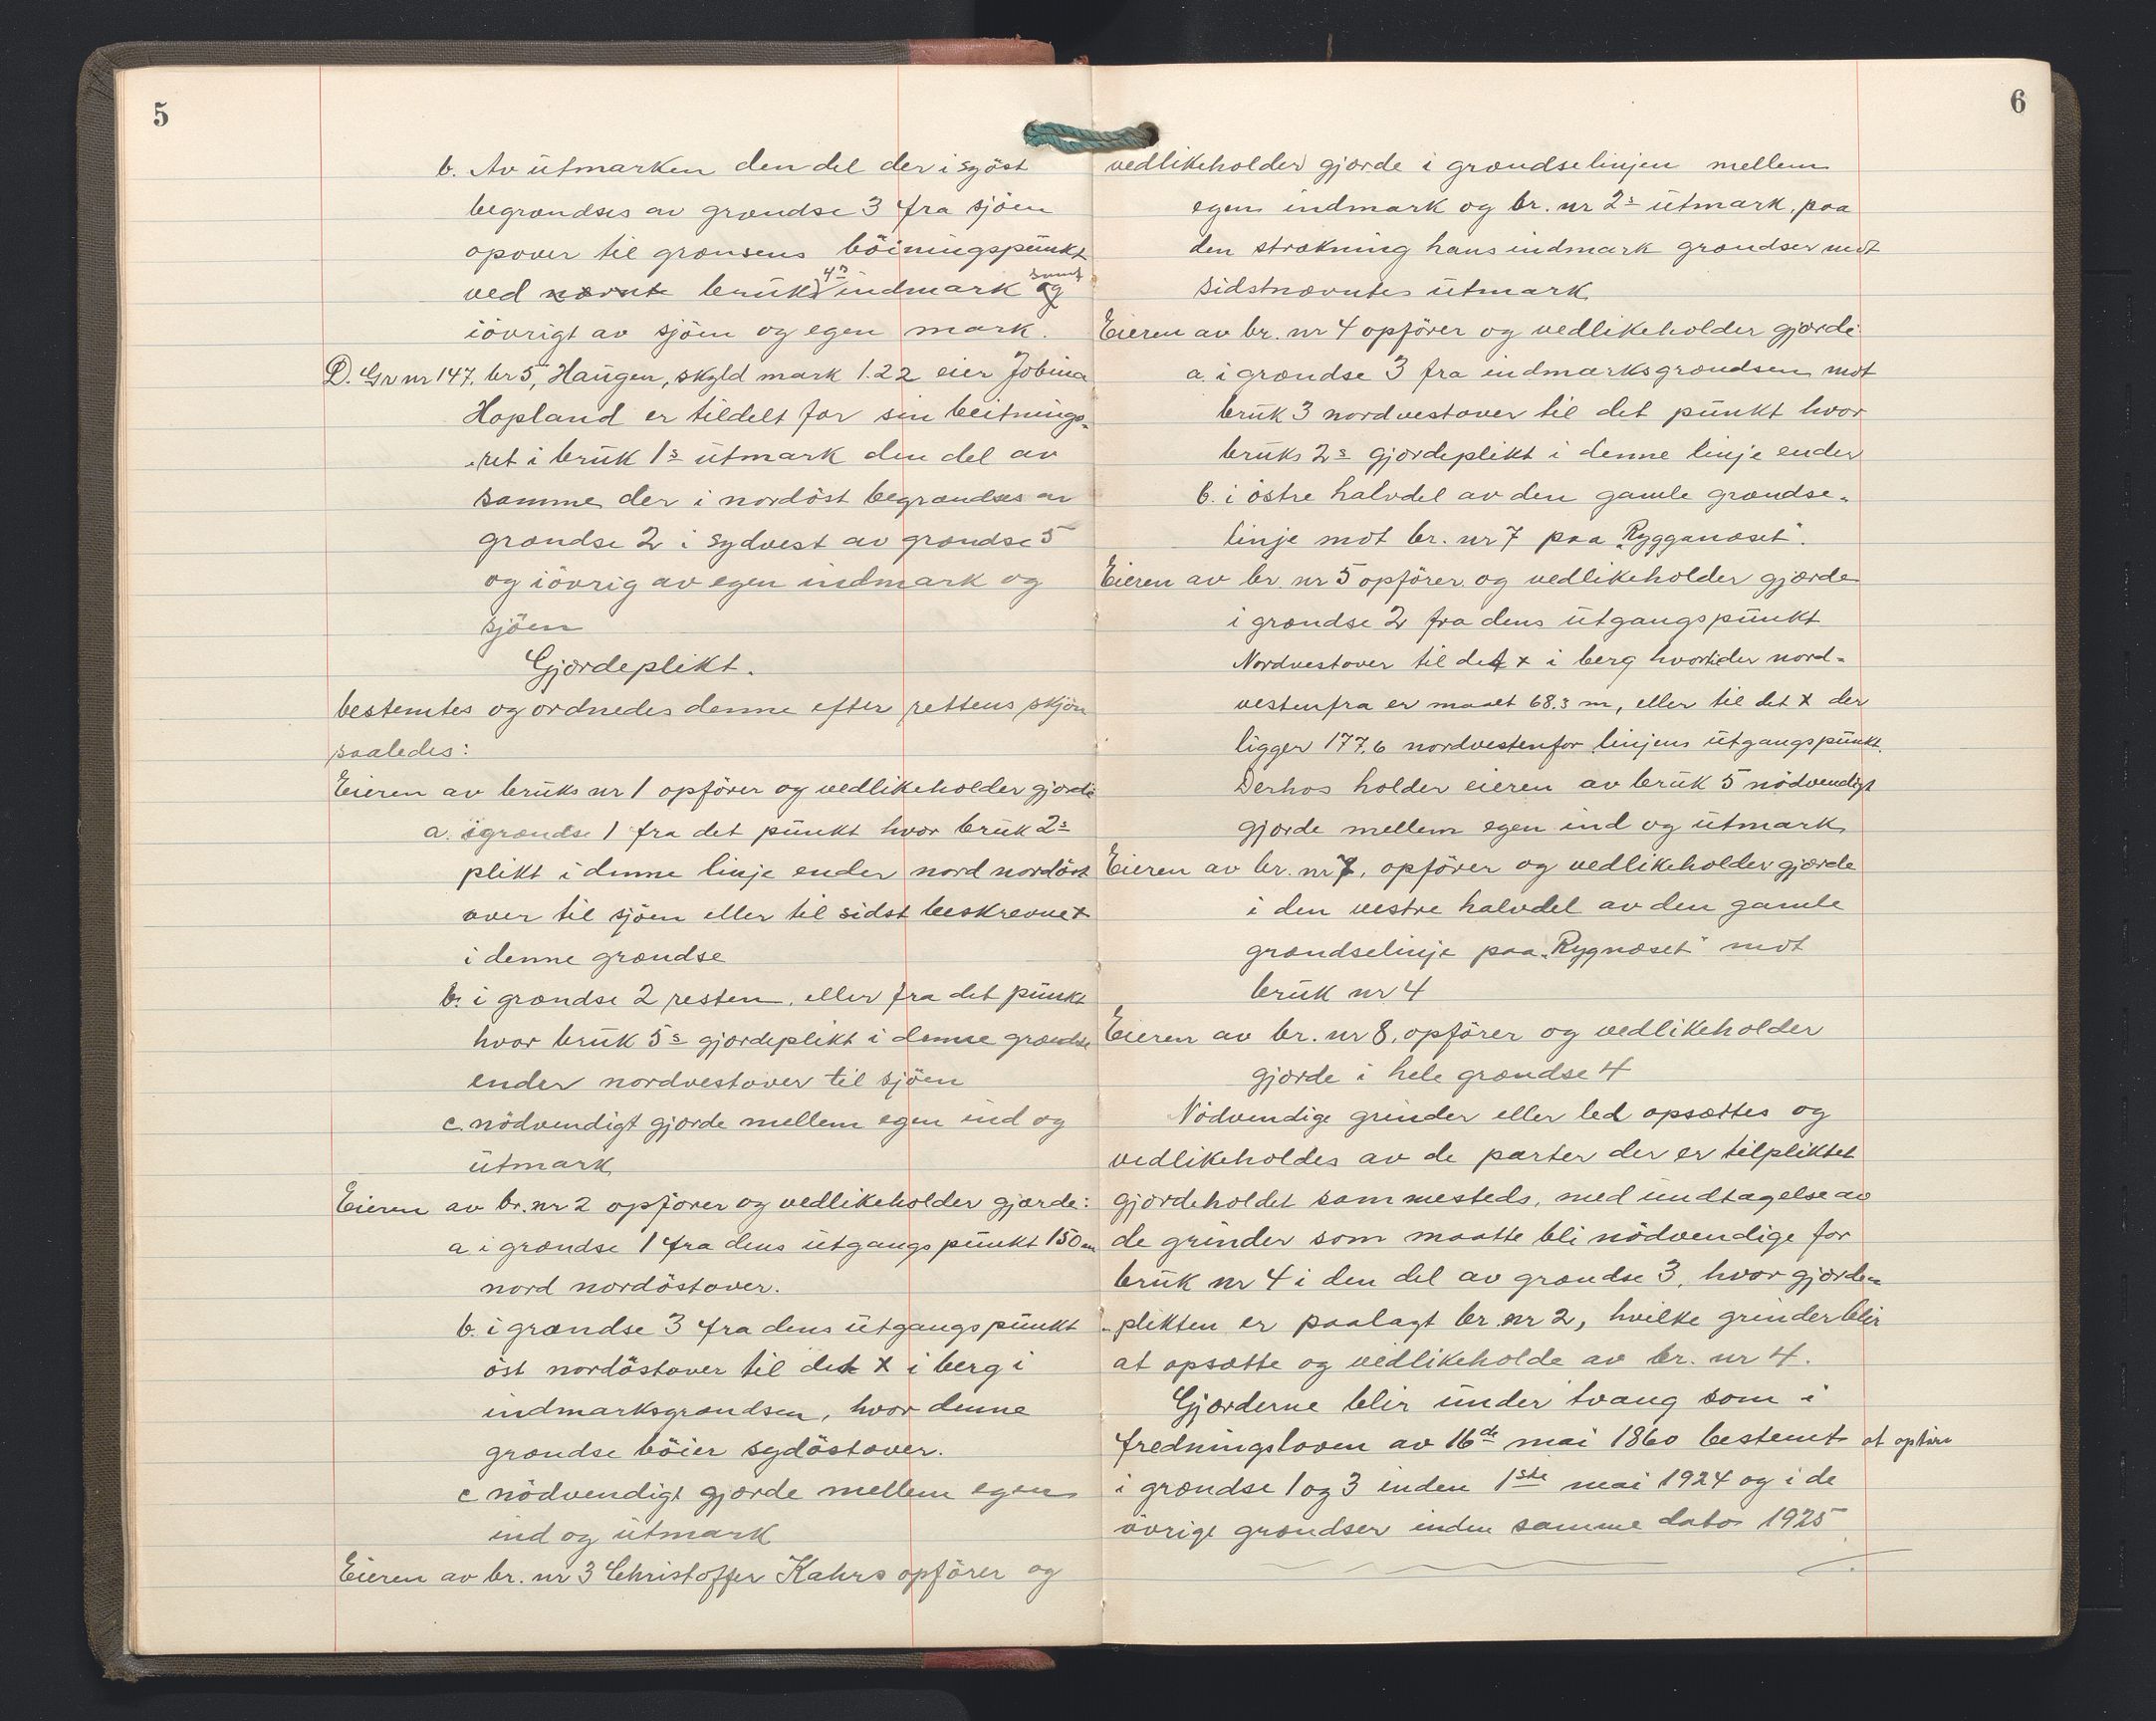 5
b. Av utmarken den del der i syöst
begrændses av grændse 3 fra sjöen
opover til grænsens böiningspunkt
ved nævnte bruk 4s indmark samt
iövrigt av sjöen og egen mark.
D. Gr nr 147, br 5, Haugen, skyld mark 1.22 eier Jobina
Hopland er tildelt for sin beitnings-
-ret i bruk 1s utmark den del av
samme der i nordöst begrændses av
grændse 2 i sydvest av grændse 5
og iövrig av egen indmark og
sjöen
Gjærdeplikt.
bestemtes og ordnedes denne efter rettens skjön
saaledes:
Eieren av bruks nr 1 opförer og vedlikeholder gjærde
a. i grændse 1 fra det punkt hvor bruk 2s
plikt i denne linje ender nord nordöst
over til sjöen eller til sidst beskrevne x
i denne grændse
b. i grændse 2 resten, eller fra det punkt
hvor bruk 5s gjærdeplikt i denne grændse
ender nordvestover til sjöen
c. nödvendigt gjærde mellem egen ind og
utmark
Eieren av br. nr 2 opförer og vedlikeholder gjærde:
a i grændse 1 fra dens utgangspunkt 150 m
nord nordöstover.
b. i grændse 3 fra dens utgangspunkt
öst nordöstover til det x i berg i
indmarksgrændsen, hvor denne
grændse böier sydöstover.
c nödvendigt gjærde mellem egen
ind og utmark
Eieren av br. nr 3 Christoffer Kahrs opförer og
6
vedlikeholder gjærde i grændselinjen mellem
egen indmark og br. nr 2s utmark, paa
den strækning hans indmark grændser mot
sidstnævntes utmark
Eieren av br. nr 4 opförer og vedlikeholder gjærde
a. i grændse 3 fra indmarksgrændsen mot
bruk 3 nordvestover til det punkt hvor
bruks 2s gjærdeplikt i denne linje ender
b. i östre halvdel av den gamle grændse-
linje mot br. nr 7 paa "Rygganæset".
Eieren av br. nr 5 opförer og vedlikeholder gjærde
i grændse 2 fra dens utgangspunkt
Nordvestover til det x i berg hvortil der nord-
vestenfra er maalt 68.3 m, eller til det x der
ligger 177.6 nordvestenfor linjens utgangspunkt.
Derhos holder eieren av bruk 5 nödvendigt
gjærde mellem egen ind og utmark
Eieren av br. nr 7, opförer og vedlikeholder gjærde
i den vestre halvdel av den gamle
grændselinje paa "Rygnæset" mot
bruk nr 4
Eieren av br. nr 8, opförer og vedlikeholder
gjærde i hele grændse 4
Nödvendige grinder eller led opsættes og
vedlikeholdes av de parter der er tilpliktet
gjærdeholdet sammesteds, med undtagelse av
de grinder som maatte bli nödvendige for
bruk nr 4 i den del av grændse 3, hvor gjærde-
-plikten er paalagt br. nr 2, hvilke grinder blir
at opsætte og vedlikeholde av br. nr 4.
Gjærderne blir under tvang som i
fredningsloven av 16de mai 1860 bestemt at opföre
i grændse 1 og 3 inden 1ste mai 1924 og i de
övrige grændser inden samme dato 1925